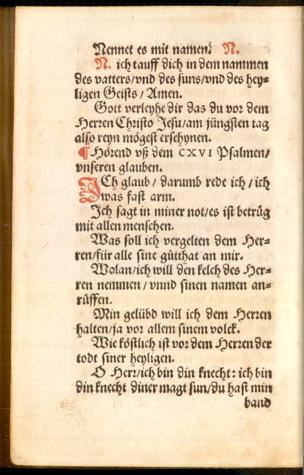 Nennet es mit namen: N.
N. ich tauff dich in dem nammen
des vatters/vnd des suns/vnd des hey-
ligen Geists / Amen.
Gott verleyhe dir das du vor dem
Herren Christo Jesu/am jüngsten tag
also reyn mögest erschynen.
¶ Hörend vß dem CXVI Psalmen/
vnseren glauben.
ICh glaub / darumb rede ich / ich
was fast arm.
Ich sagt in miner not/es ist betrüg
mit allen menschen.
Was soll ich vergelten dem Her-
ren/für alle sine gütthat an mir.
Wolan/ich will den kelch des Her-
ren nemmen / vnnd sinen namen an-
rüffen.
Min gelübd will ich dem Herren
halten/ja vor allem sinem volck.
Wie köstlich ist vor dem Herren der
todt siner heyligen.
O Herr/ich bin din knecht: ich bin
din knecht diner magt sun/du hast min
band